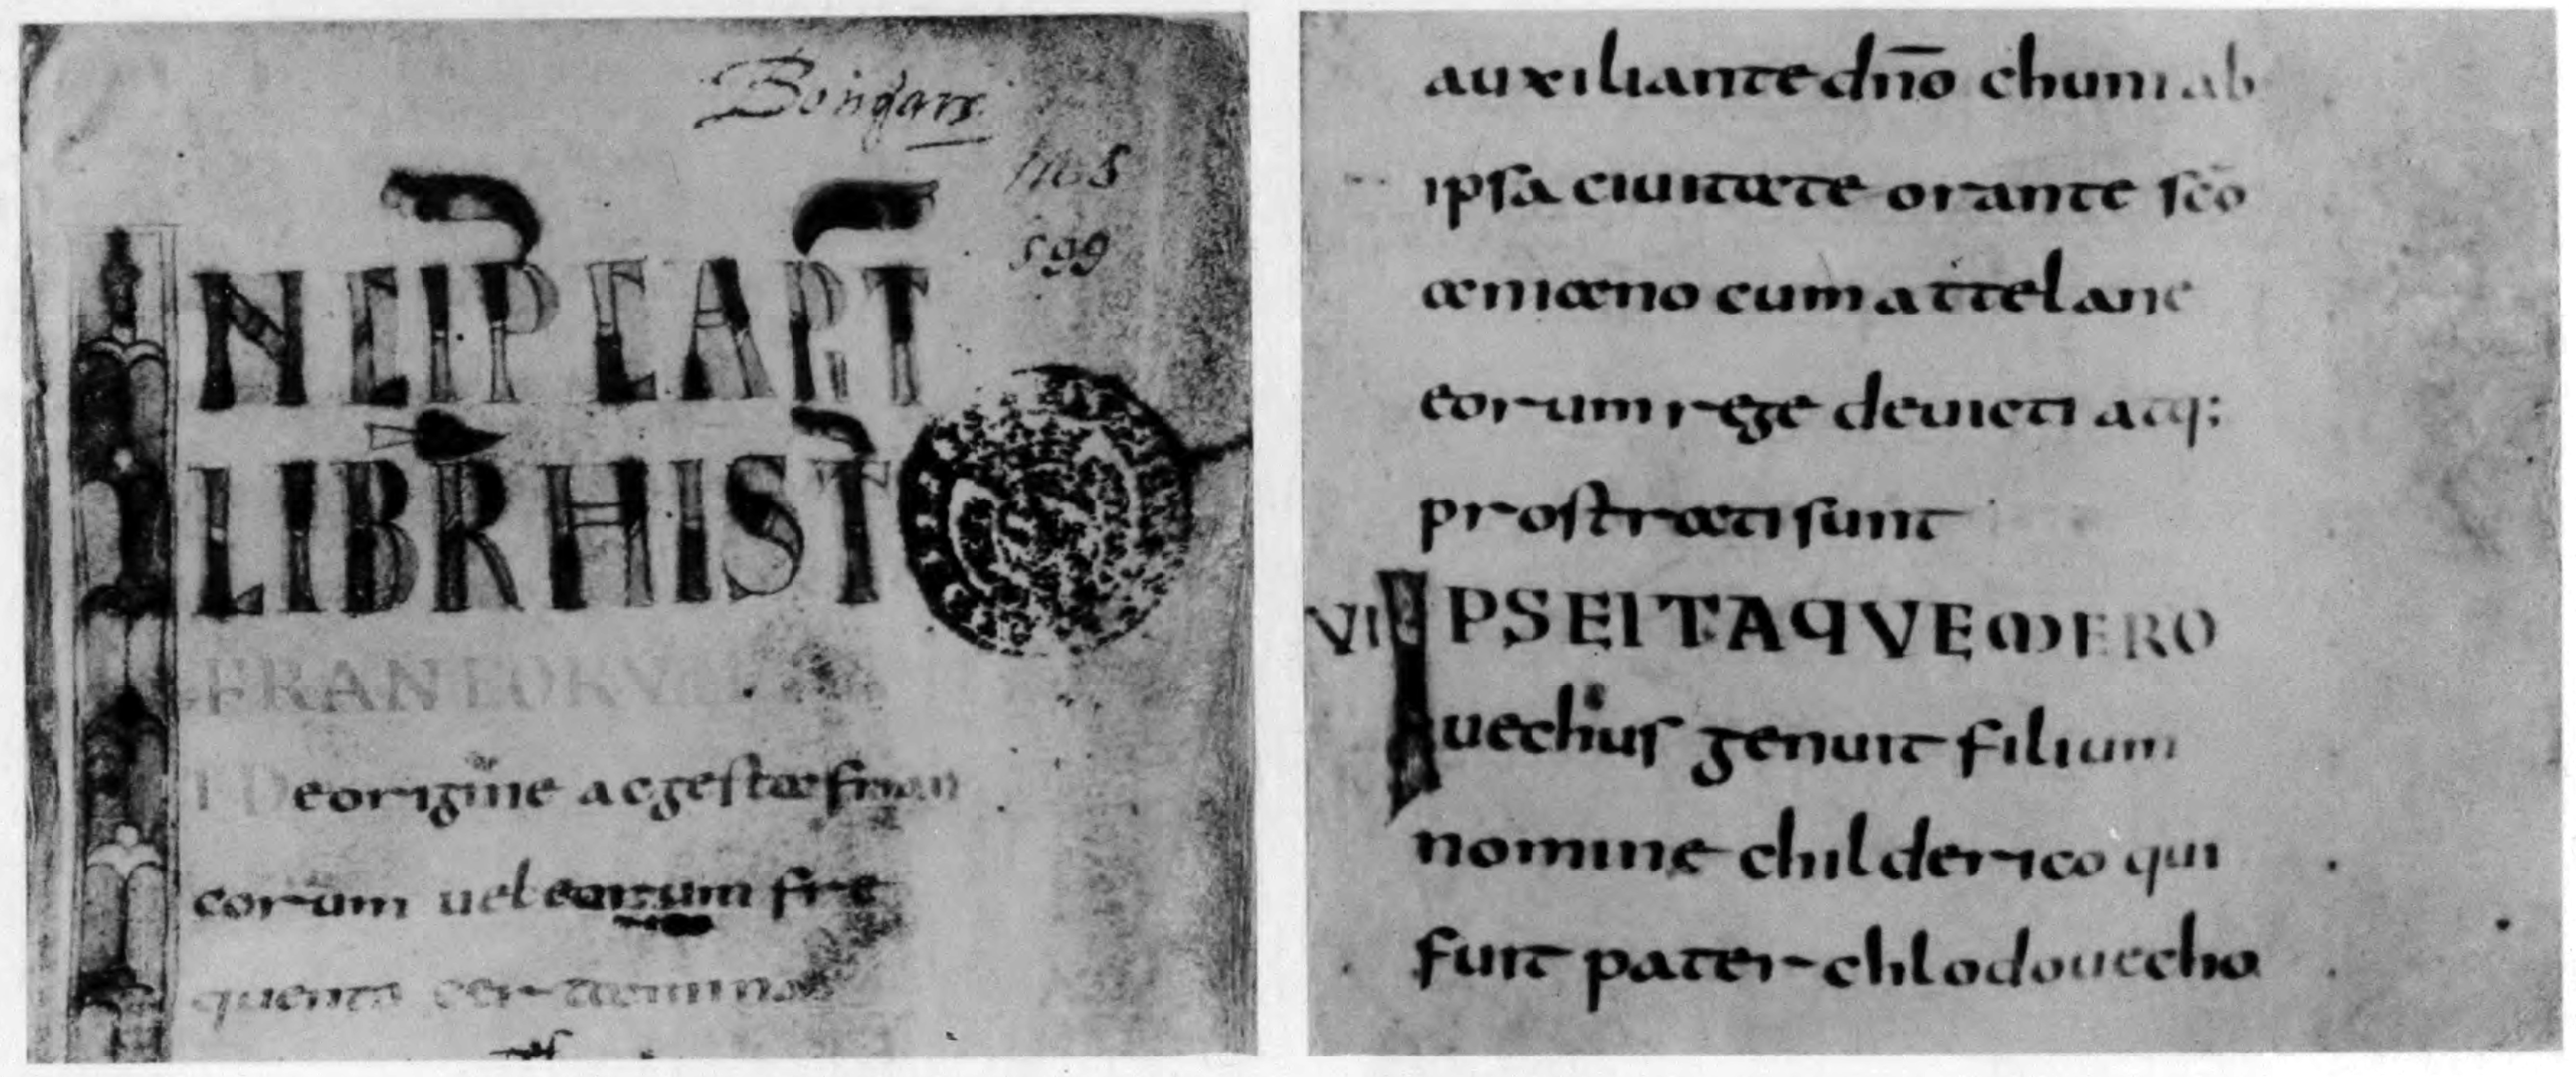 Bongars.
MS
599
INCIP CAPT
LIBR HIST
FRANCORUM
ID eorigine ac gesta fran
corum uel eorum fre
quenta certamina
auxiliante dño chuni ab
ipsa ciuitate orante scō
aniano cum attelane
eorum rege deuicti atq;
prostrati sunt
VI IPSE ITAQVE MERO
uechus genuit filium
nomine childerico qui
fuit pater chlodouecho